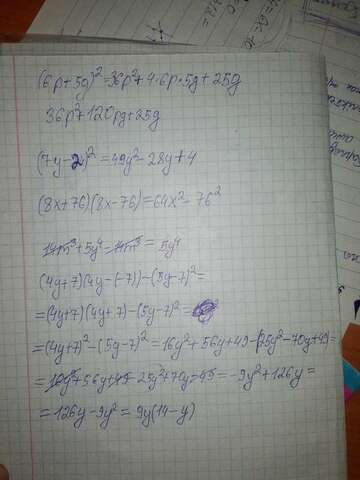 (6p+5g)²=36p²+4·6p·5g+25g
36p²+120pg+25g
(7y-2)²=49y²-28y+4
(8x+76)(8x-76)=64x²-76²
14m³+5y⁴-14m³=5y⁴
(4y+7)(4y-(-7))-(5y-7)²=
=(4y+7)(4y+7)-(5y-7)²=
=(4y+7)²-(5y-7)²=16y²+56y+49-(25y²-70y+49)=
=16y²+56y+49-25y²+70y-49=-9y²+126y=
=126y-9y²=9y(14-y)